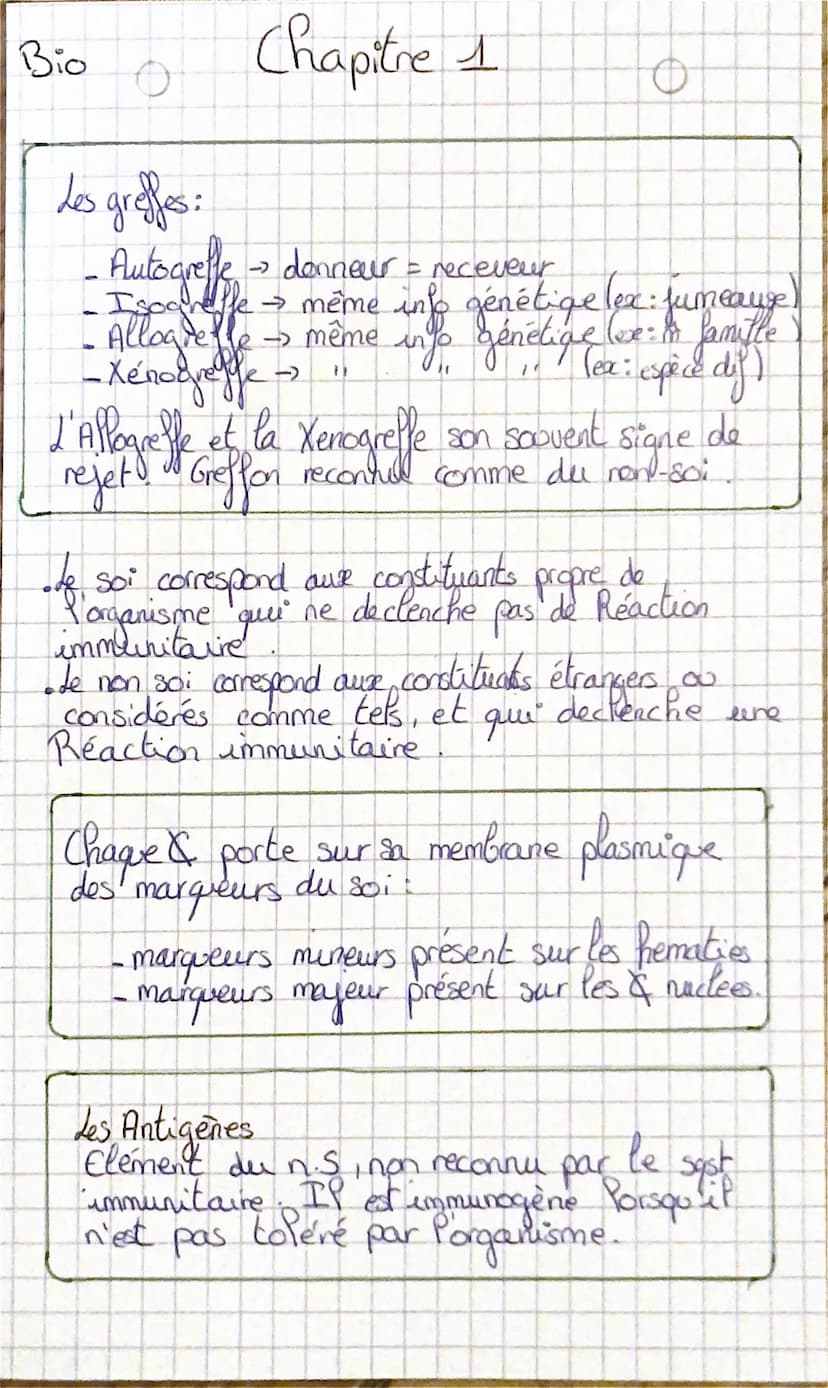 Bio
Chapitre 1
Les greffes:
- Autogreffe → donneur = receveur
- Isogreffe → même info génétiqe (ex: jumeauxe)
- Allogreffe → même info génétiqe (ex: famille)
- Xénogreffe → " " " (ex: espèce dif)
L'Allogreffe et la Xenogreffe son souvent signe de
rejet! Greffon reconnue comme du non-soi.
• Le soi correspond aux constituants propre de
l'organisme qui ne declenche pas de Réaction
immunitaire.
• Le non soi correspond aux constituats étrangers ou
considérés comme tels, et qui declenche une
Réaction immunitaire.
Chaque porte sur sa membrane plasmique
des marqueurs du soi:
- marqueurs mineurs présent sur les hematies
- marqueurs majeur présent sur les nuclees.
Les Antigènes
Elément du n.S, non reconnu par le syst
immunitaire. Il est immunogène lorsqu'il
n'est pas toléré par l'organisme.